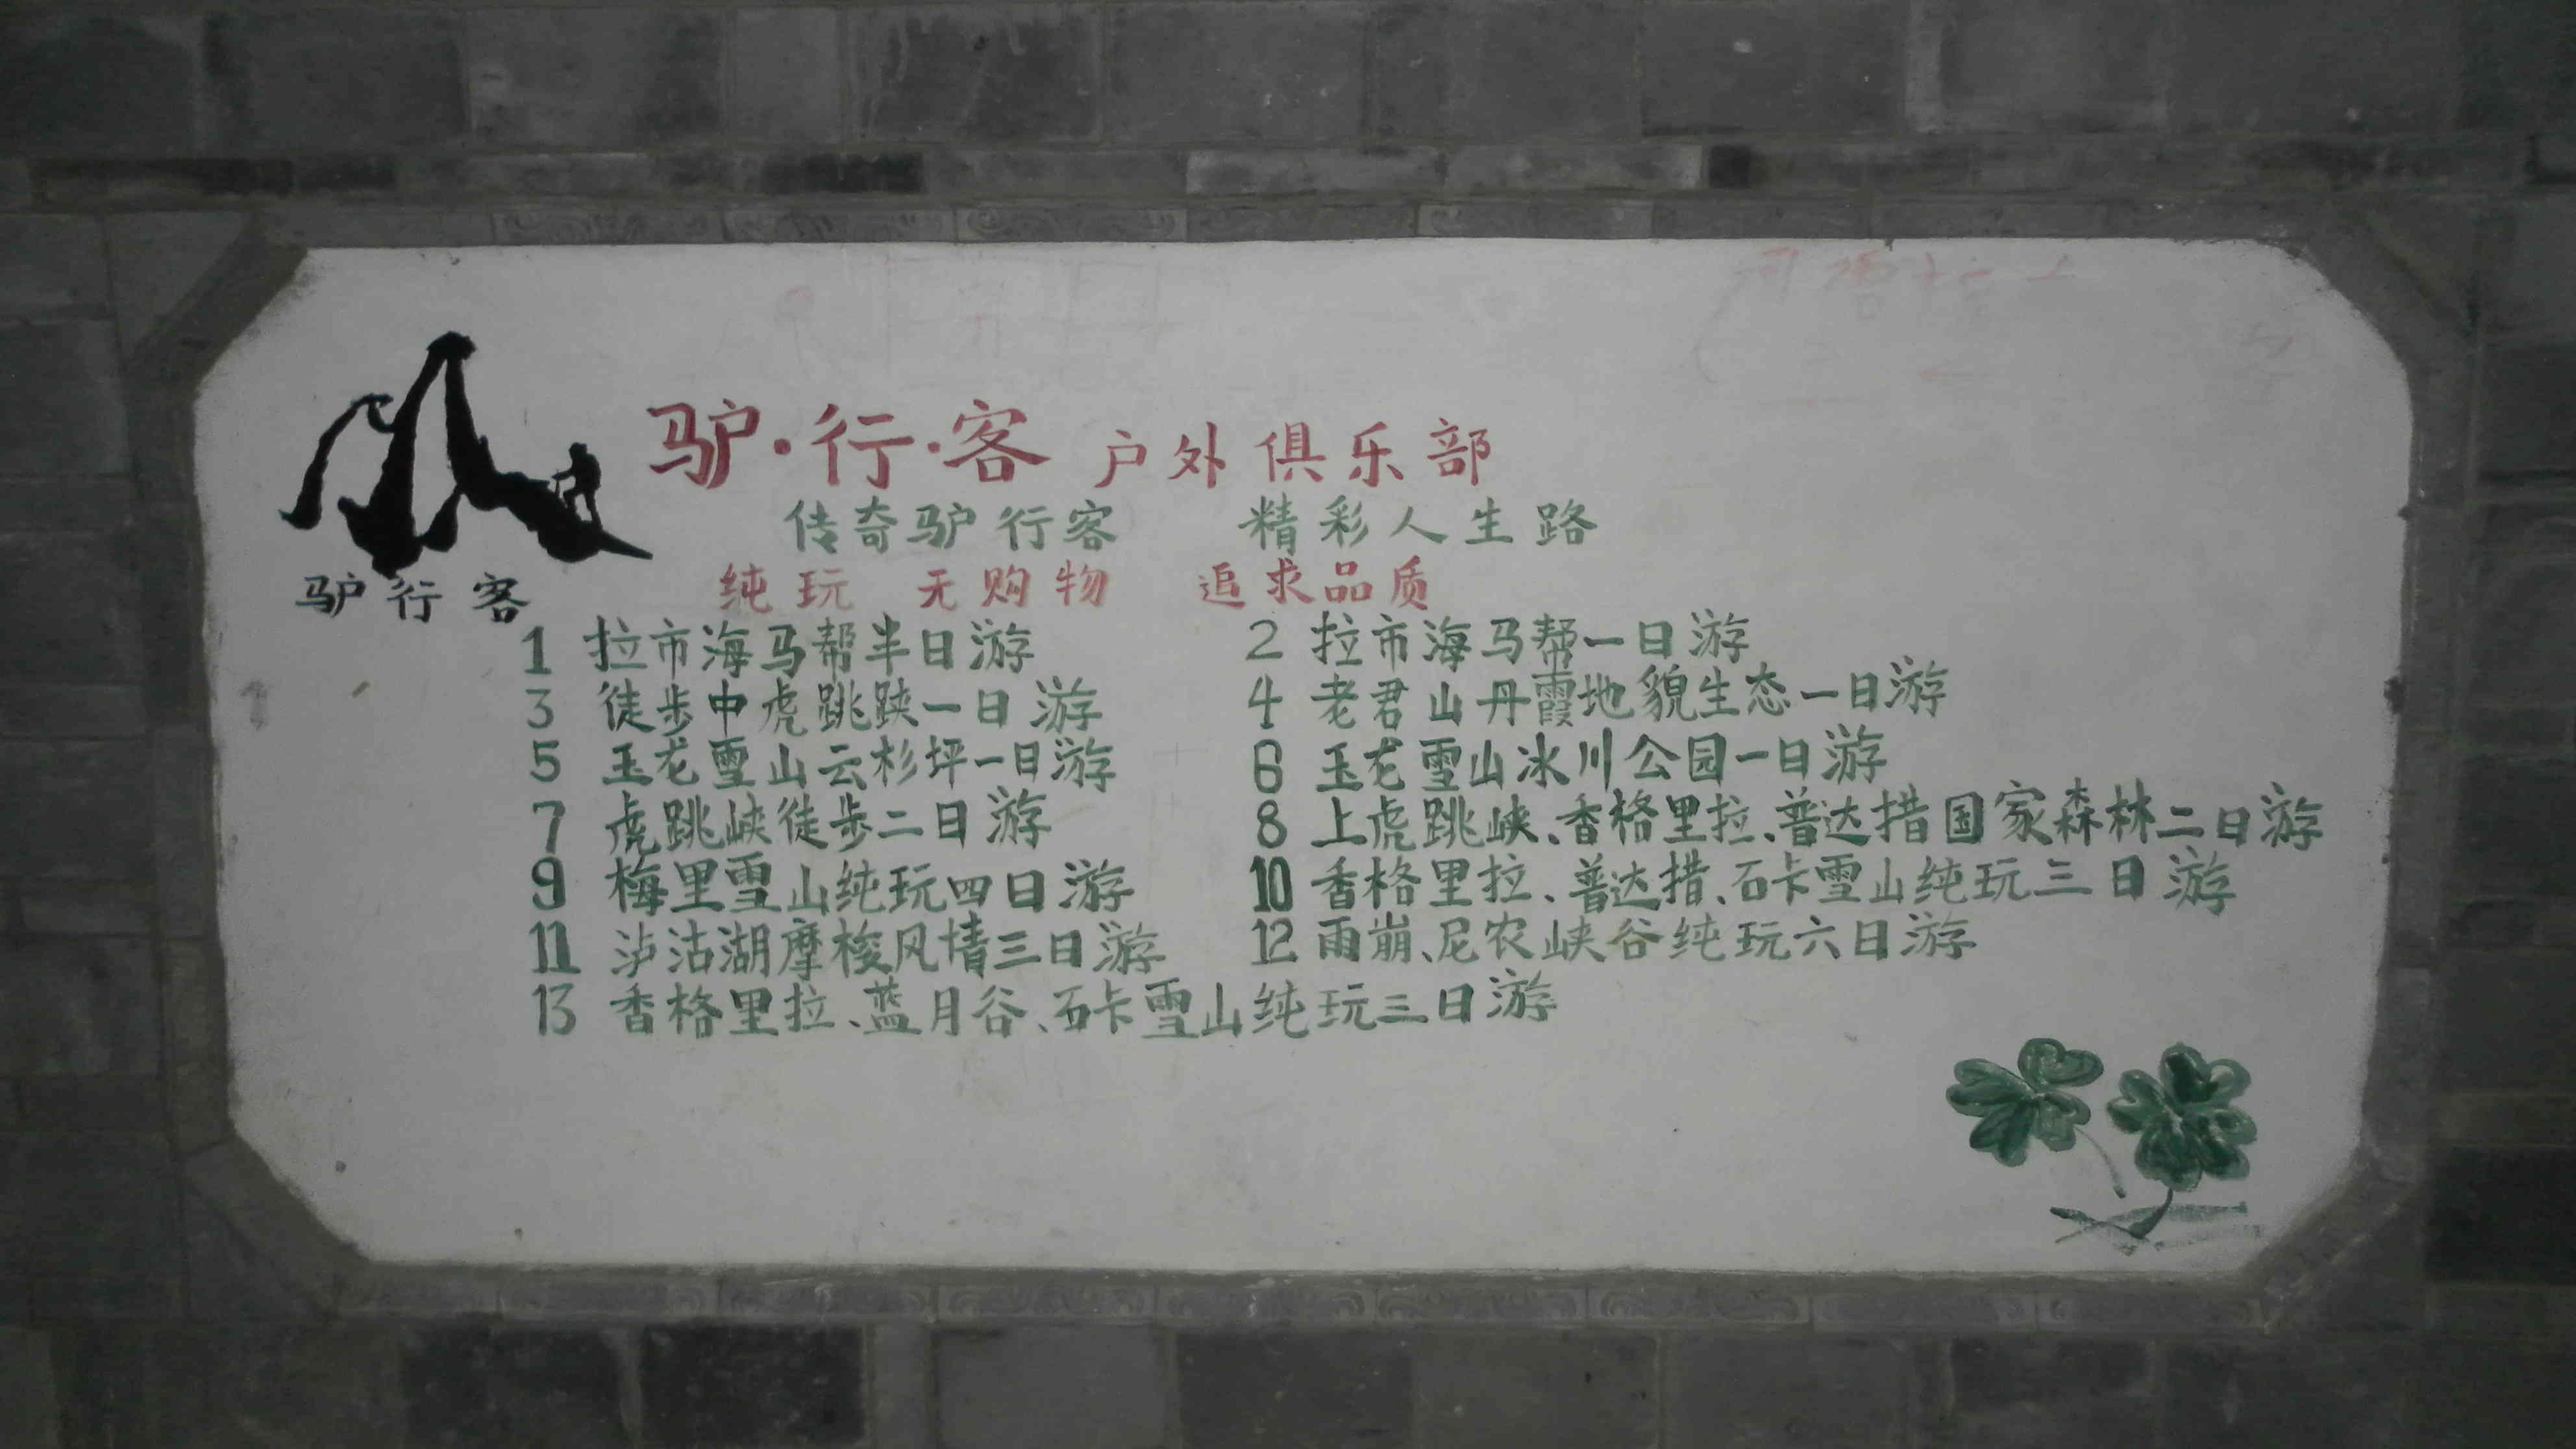 驴·行·客 户外俱乐部
传奇驴行客 精彩人生路
驴行客
纯玩 无购物 追求品质
1 拉市海马帮半日游
2 拉市海马帮一日游
3 徒步中虎跳峡一日游
4 老君山丹霞地貌生态一日游
5 玉龙雪山云杉坪一日游
6 玉龙雪山冰川公园一日游
7 虎跳峡徒步二日游
8 上虎跳峡、香格里拉、普达措国家森林二日游
9 梅里雪山纯玩四日游
10 香格里拉、普达措、石卡雪山纯玩三日游
11 泸沽湖摩梭风情三日游
12 雨崩、尼农峡谷纯玩六日游
13 香格里拉、蓝月谷、石卡雪山纯玩三日游